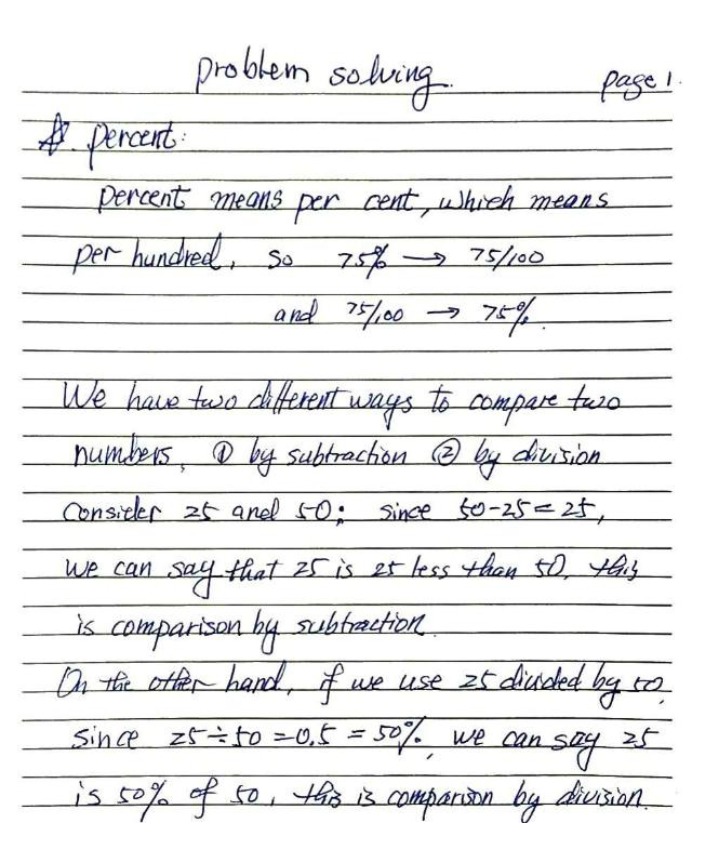 problem solving. page 1.
☆. percent:
percent means per cent, which means
per hundred, so 75% → 75/100
and 75/100 → 75%.
We have two different ways to compare two
numbers, ① by subtraction ② by division
Consider 25 and 50; since 50-25=25,
we can say that 25 is 25 less than 50, this
is comparison by subtraction.
On the other hand, if we use 25 divided by 50,
since 25÷50=0.5=50%, we can say 25
is 50% of 50, this is comparison by division.